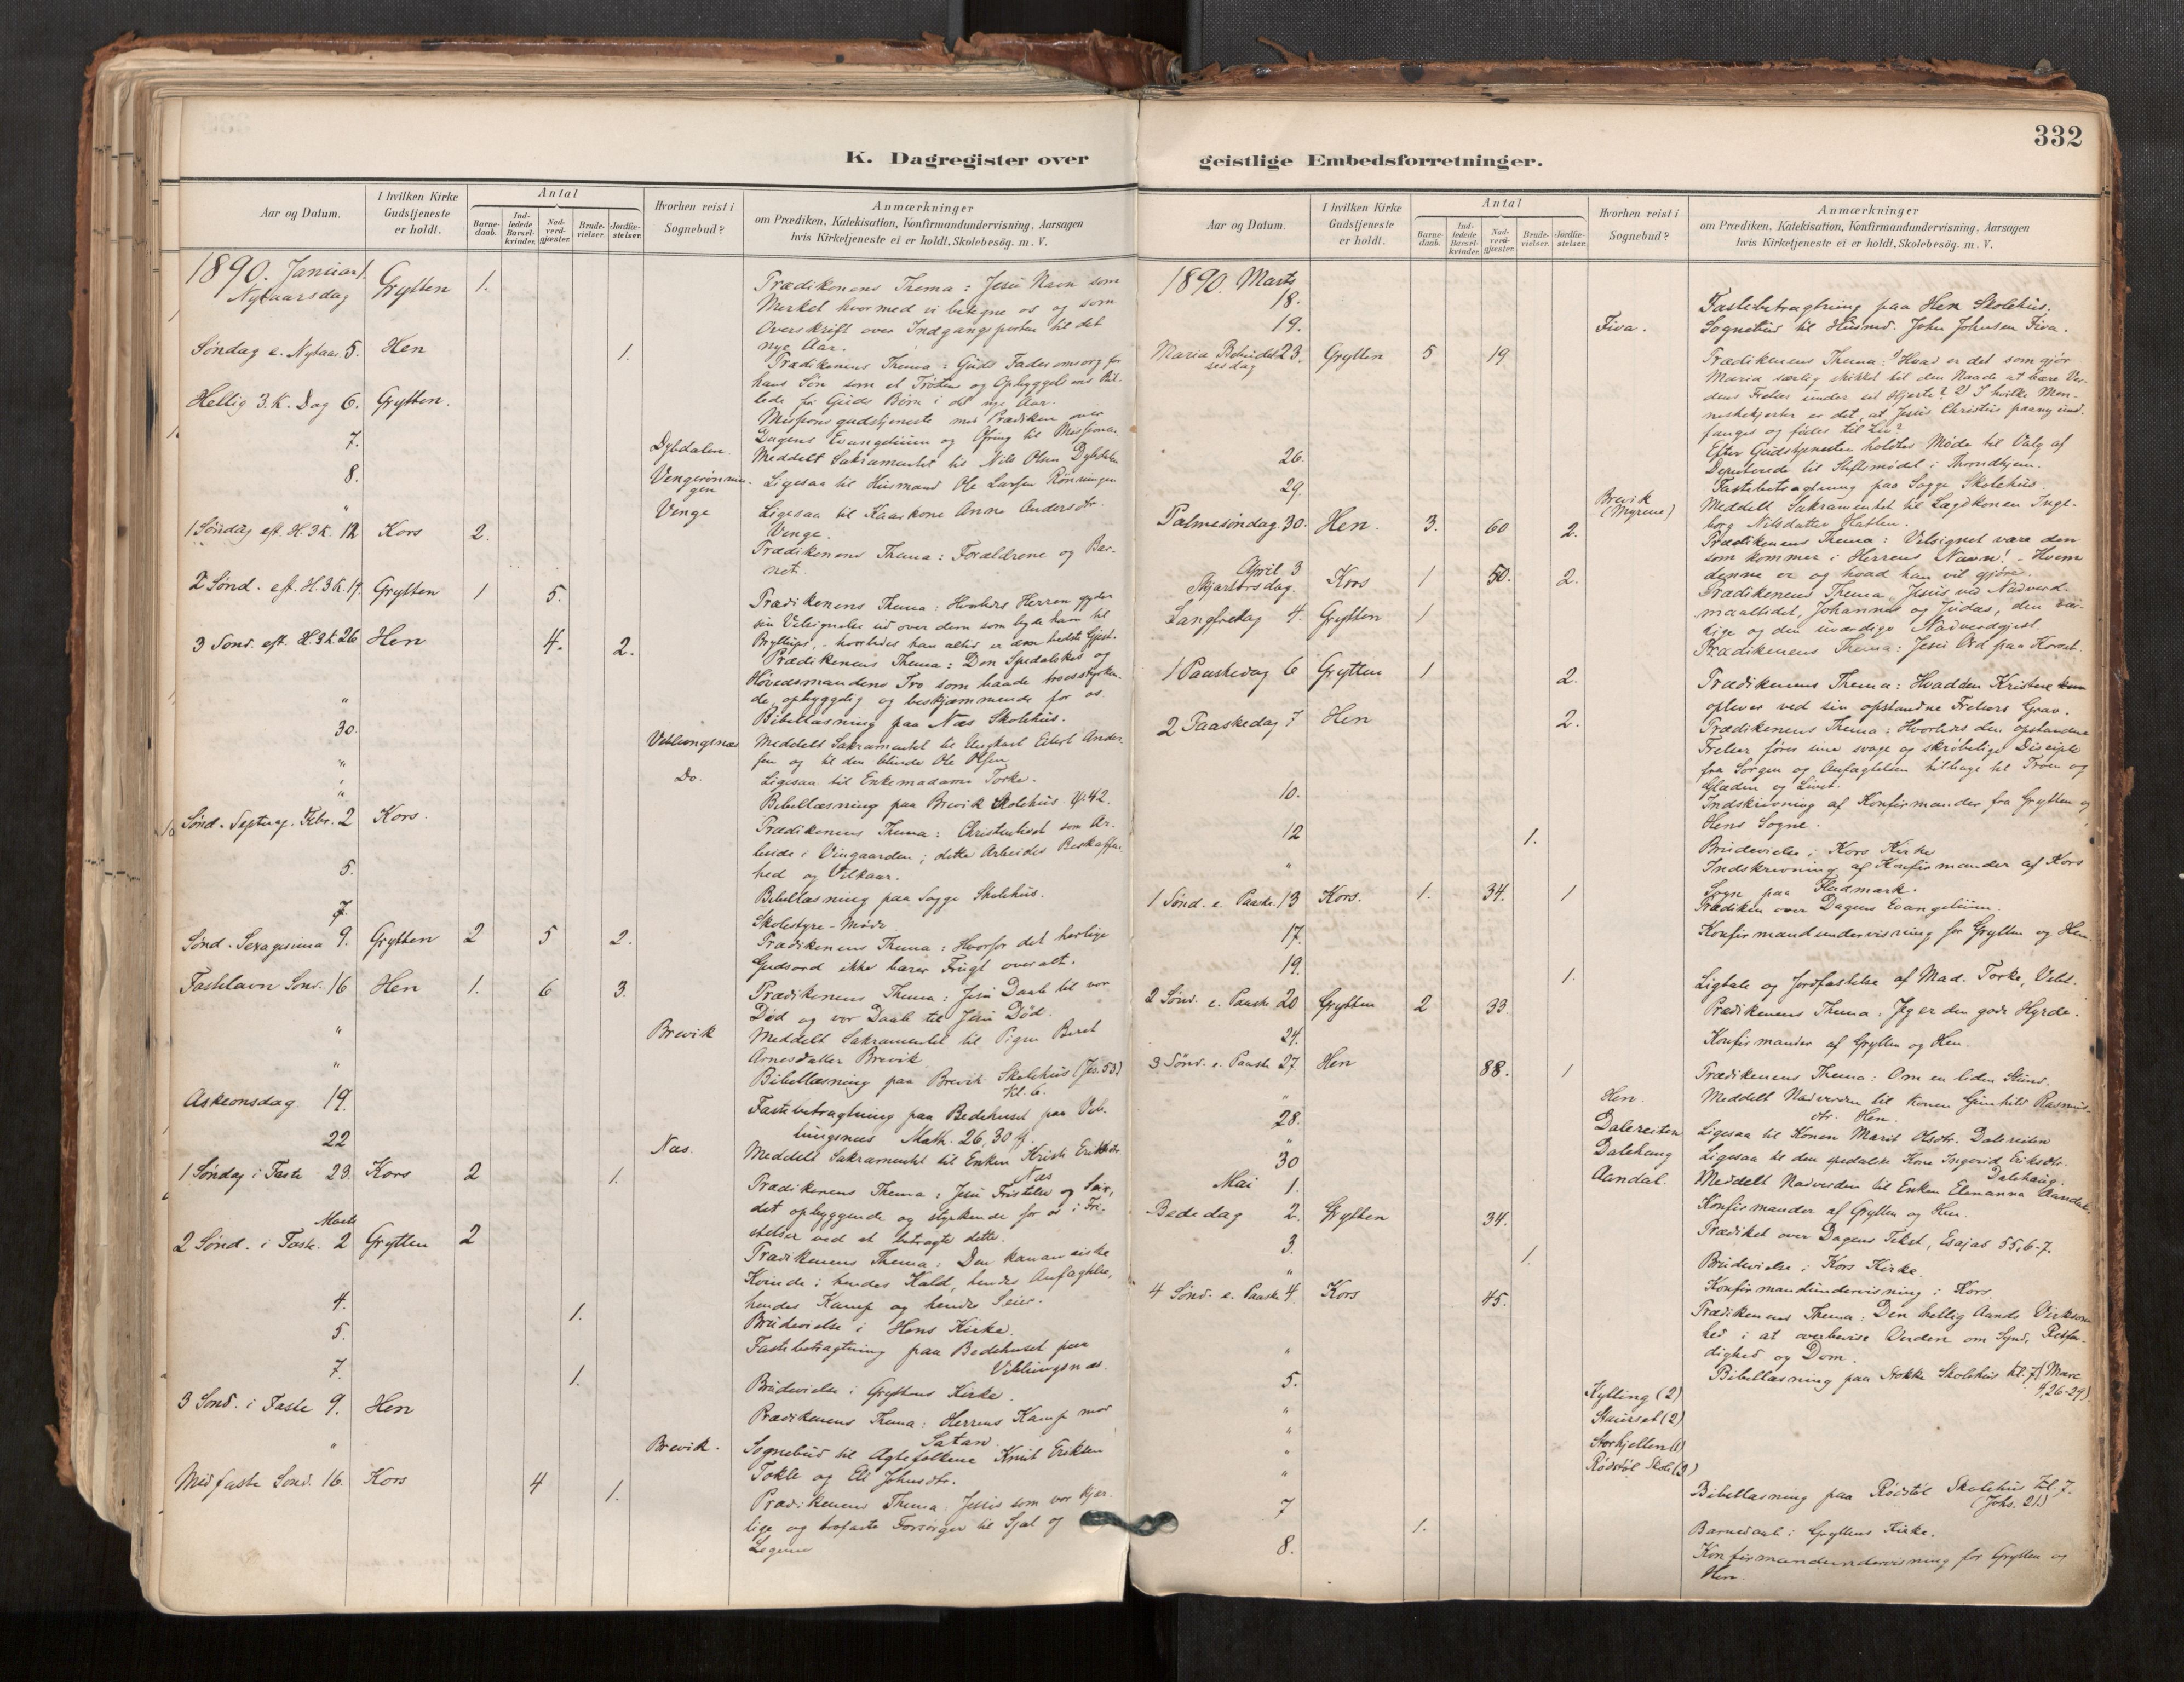 332
K. Dagregister over
geistlige Embedsforretninger.
Aar og Datum.
I hvilken Kirke Gudstjeneste er holdt.
Antal
Barnedaab.
Indledede Barselkvinder.
Nadverdgjester.
Brudevielser.
Jordfæstelser.
Hvorhen reist i Sognebud?
Anmærkninger
om Prædiken, Katekisation, Konfirmandundervisning, Aarsagen
hvis Kirketjeneste ei er holdt, Skolebesög. m. V.
1890. Januar 1. Nytaarsdag Grytten 1. Prædikenens Thema: Jesu Navn som
Merket hvormed vi betegne os og som
Overskrift over Indgangsporten til det
nye Aar.
Søndag e. Nytaar 5. Hen 1. Prædikenens Thema: Guds Faderomsorg for
hans Søn som et Trøstens og Opbyggelsens Bil-
lede for Guds Børn i det nye Aar.
Hellig 3. K. Dag 6. Grytten. Missionsgudstjeneste med Prædiken over
Dagens Evangelium og Ofring til Missionen.
7. Dybdalen. Meddelt Sakramentet til Nils Olsen Dybdalen
8. Vengerønningen Ligesaa til Husmand Ole Larsen Rönningen
" Venge Ligesaa til Kaarkone Anne Andersdtr.
Venge.
1 Søndag eft. H. 3 K. 12 Kors 2. Prædikenens Thema: Forældrene og Bar-
net.
2 Sønd. eft. H. 3 K. 19. Grytten 1 5. Prædikenens Thema: Hvorledes Herren gyder
sin Velsignelse ud over dem som byde ham til
Bryllups, - hvorledes han altid er den bedste Gjest.
3 Sønd. eft. H. 3 K. 26 Hen 4. 2. Prædikenens Thema: Den Spedalskes og
Høvedsmandens Tro som baade troesstyrken-
de, opbyggelig og beskjæmmende for os.
" Bibellæsning paa Næs Skolehus.
30. Veblungsnæs Meddelt Sakramentet til Ungkarl Edvrt Ander-
sen og til den blinde Ole Olsen
" Do. Ligesaa til Enkemadame Torke.
" Bibellæsning paa Brevik Skolehus. ψ: 42.
Sønd. Septuag. Febr. 2 Kors. Prædikenens Thema: Christenlivet som Ar-
beide i Vingaarden; dette Arbeides Beskaffen-
hed og Vilkaar.
5. Bibellæsning paa Sogge Skolehus.
7. Skolestyre-Møde
Sønd. Sexagesima 9. Grytten 2 5 2. Prædikenens Thema: Hvorfor det herlige
Gudsord ikke bærer Frugt overalt.
Fastelavn Sønd. 16 Hen 1. 6 3. Prædikenens Thema: Jesu Daab til vor
Død og vor Daab til Jesu Død.
" Brevik Meddelt Sakramentet til Pigen Beret
Arnesdatter Brevik
" Bibellæsning paa Brevik Skolehus (Jes. 53)
Kl. 6.
Askeonsdag 19. Fastebetragtning paa Bedehuset paa Veb-
lungsnæs Math. 26, 30 f.
22 Næs. Meddelt Sakramentet til Enken Kristi Eriksdtr.
Næs
1 Søndag i Faste 23. Kors 2 1. Prædikenens Thema: Jesu Fristelse og Seir,
det opbyggende og styrkende for os i Fri-
stelser ved at betragte dette.
2 Sønd. i Faste. Marts 2 Grytten 2 Prædikenens Thema: Den kananæiske
Kvinde i hendes Kald, hendes Anfægtelse,
hendes Kamp og hendes Seier.
4. 1. Brudevielse i Hens Kirke.
5. Fastebetragtning paa Bedehuset paa
Veblungsnæs.
7. 1. Brudevielse i Gryttens Kirke.
3 Sønd. i Faste 9. Hen Prædikenens Thema: Herrens Kamp mod
Satan.
" Brevik. Sognebud til Agtefolkene Knut Eriksen
Tokle og Eli Johnsdtr.
Midfaste Sønd. 16. Kors 4 1. Prædikenens Thema: Jesus som vor kjær-
lige og trofaste Forsørger til Sjæl og
Legeme
Aar og Datum.
I hvilken Kirke Gudstjeneste er holdt.
Antal
Barnedaab.
Indledede Barselkvinder.
Nadverdgjester.
Brudevielser.
Jordfæstelser.
Hvorhen reist i Sognebud?
Anmærkninger
om Prædiken, Katekisation, Konfirmandundervisning, Aarsagen
hvis Kirketjeneste ei er holdt, Skolebesög. m. V.
1890. Marts
18. Fastebetragtning paa Hen Skolehus.
19. Fiva. Sognebud til Husmd. John Johnsen Fiva.
Maria Bebudelsesdag 23. Grytten 5 19 Prædikenens Thema: 1) Hvad er det som gjør
Maria særlig skikket til den Naade at bære Ver-
dens Frelser under sit Hjerte? 2) I hvilke Men-
neskehjerter er det, at Jesus Christus paany und-
fanges og fødes til Liv?
Efter Gudstjenesten holdtes Møde til Valg af
Deputerede til Stiftsmødet i Throndhjem.
26. Fastebetragtning paa Sogge Skolehus.
29. Brevik (Myrene) Meddelt Sakramentet til Lægdkonen Inge-
borg Nilsdatter Hatlen.
Palmesøndag. 30. Hen. 3. 60 2. Prædikenens Thema: Velsignet være den
som kommer i Herrens Navn! - Hvem
denne er og hvad han vil gjøre.
April 3 Skjærtorsdag. Kors 1 50. 2. Prædikenens Thema: Jesus ved Nadverd-
maaltidet, Johannes og Judas, den vær-
dige og den uværdige Nadverdgjest.
Langfredag 4. Grytten 1 Prædikenens Thema: Jesu Ord paa Korset.
1 Paaskedag 6 Grytten 1 2. Prædikenens Thema: Hvad den Kristne
oplever ved sin opstandne Frelsers Grav.
2 Paaskedag 7 Hen 2. Prædikenens Thema: Hvorledes den opstandne
Frelser fører sine svage og skrøbelige Disciple
fra Sorgen og Anfægtelsen tilbage til Troen og
Glæden og Livet.
10. Indskrivning af Konfirmander fra Grytten og
Hens Sogne.
12 1. Brudevielse i Kors Kirke
" Indskrivning af Konfirmander af Kors
Sogn paa Fladmark.
1 Sønd. e. Paaske. 13 Kors. 1. 34. 1 Prædiken over Dagens Evangelium.
17. Konfirmandundervisning for Grytten og Hen.
19. 1. Ligtale og Jordfæstelse af Mad. Torke, Vebl.
2 Sønd. e. Paaske 20 Grytten 2 33 Prædikenens Thema: Jeg er den gode Hyrde.
24. Konfirmander af Grytten og Hen.
3 Sønd. e. Paaske 27 Hen 88. 1 Prædikenens Thema: Om en liden Stund.
" Hen. Meddelt Nadverden til Konen Gunhild Rasmus-
dtr. Hen.
28. Dalereiten Ligesaa til Konen Marit Olsdtr. Dalereiten
" Dalehaug Ligesaa til den spedalske Kone Ingerid Eriksdtr.
Dalehaug.
30 Aandal. Meddelt Nadverden til Enken Elenanna Aandal.
Mai 1. Konfirmander af Grytten og Hen.
Bededag 2. Grytten 34. Prædiket over Dagens Tekst, Esajas 55, 6-7.
3. 1. Brudevielse i Kors Kirke.
" Konfirmandundervisning i Kors.
4 Sønd. e. Paaske 4. Kors 45. Prædikenens Thema: Den hellig Aands Virksom-
hed i at overbevise Verden om Synd, Retfær-
dighed og Dom.
" Bibellæsning paa Stokke Skolehus Kl. 7. (Marc
4, 26-29).
5. Kylling (2)
" Stuerset (2)
" Storhjellen (1)
" Rødstøl Skole (3)
" Bibellæsning paa Rødstøl Skolehus Kl. 7.
(Joh. 21.)
7 1. Barnedaab i Gryttens Kirke.
8. Konfirmandundervisning for Grytten og
Hen.